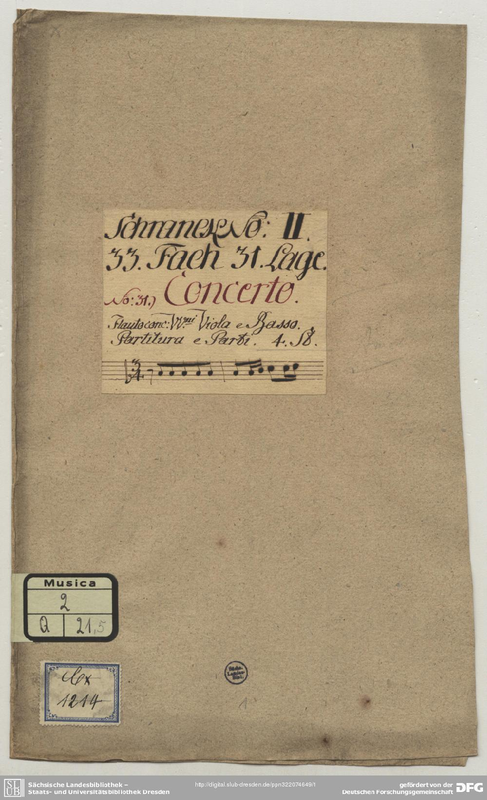 Schranck No: II.
33. Fach 31. Lage.
No: 31.) Concerto.
Flauto conc: VV.ni Viola e Basso.
Partitura e Parti. 4. St.
Musica
2
Q 21,5
Cx
1214
1
SLUB
Sächsische Landesbibliothek –
Staats- und Universitätsbibliothek Dresden
http://digital.slub-dresden.de/ppn322074649/1
gefördert von der
Deutschen Forschungsgemeinschaft
DFG